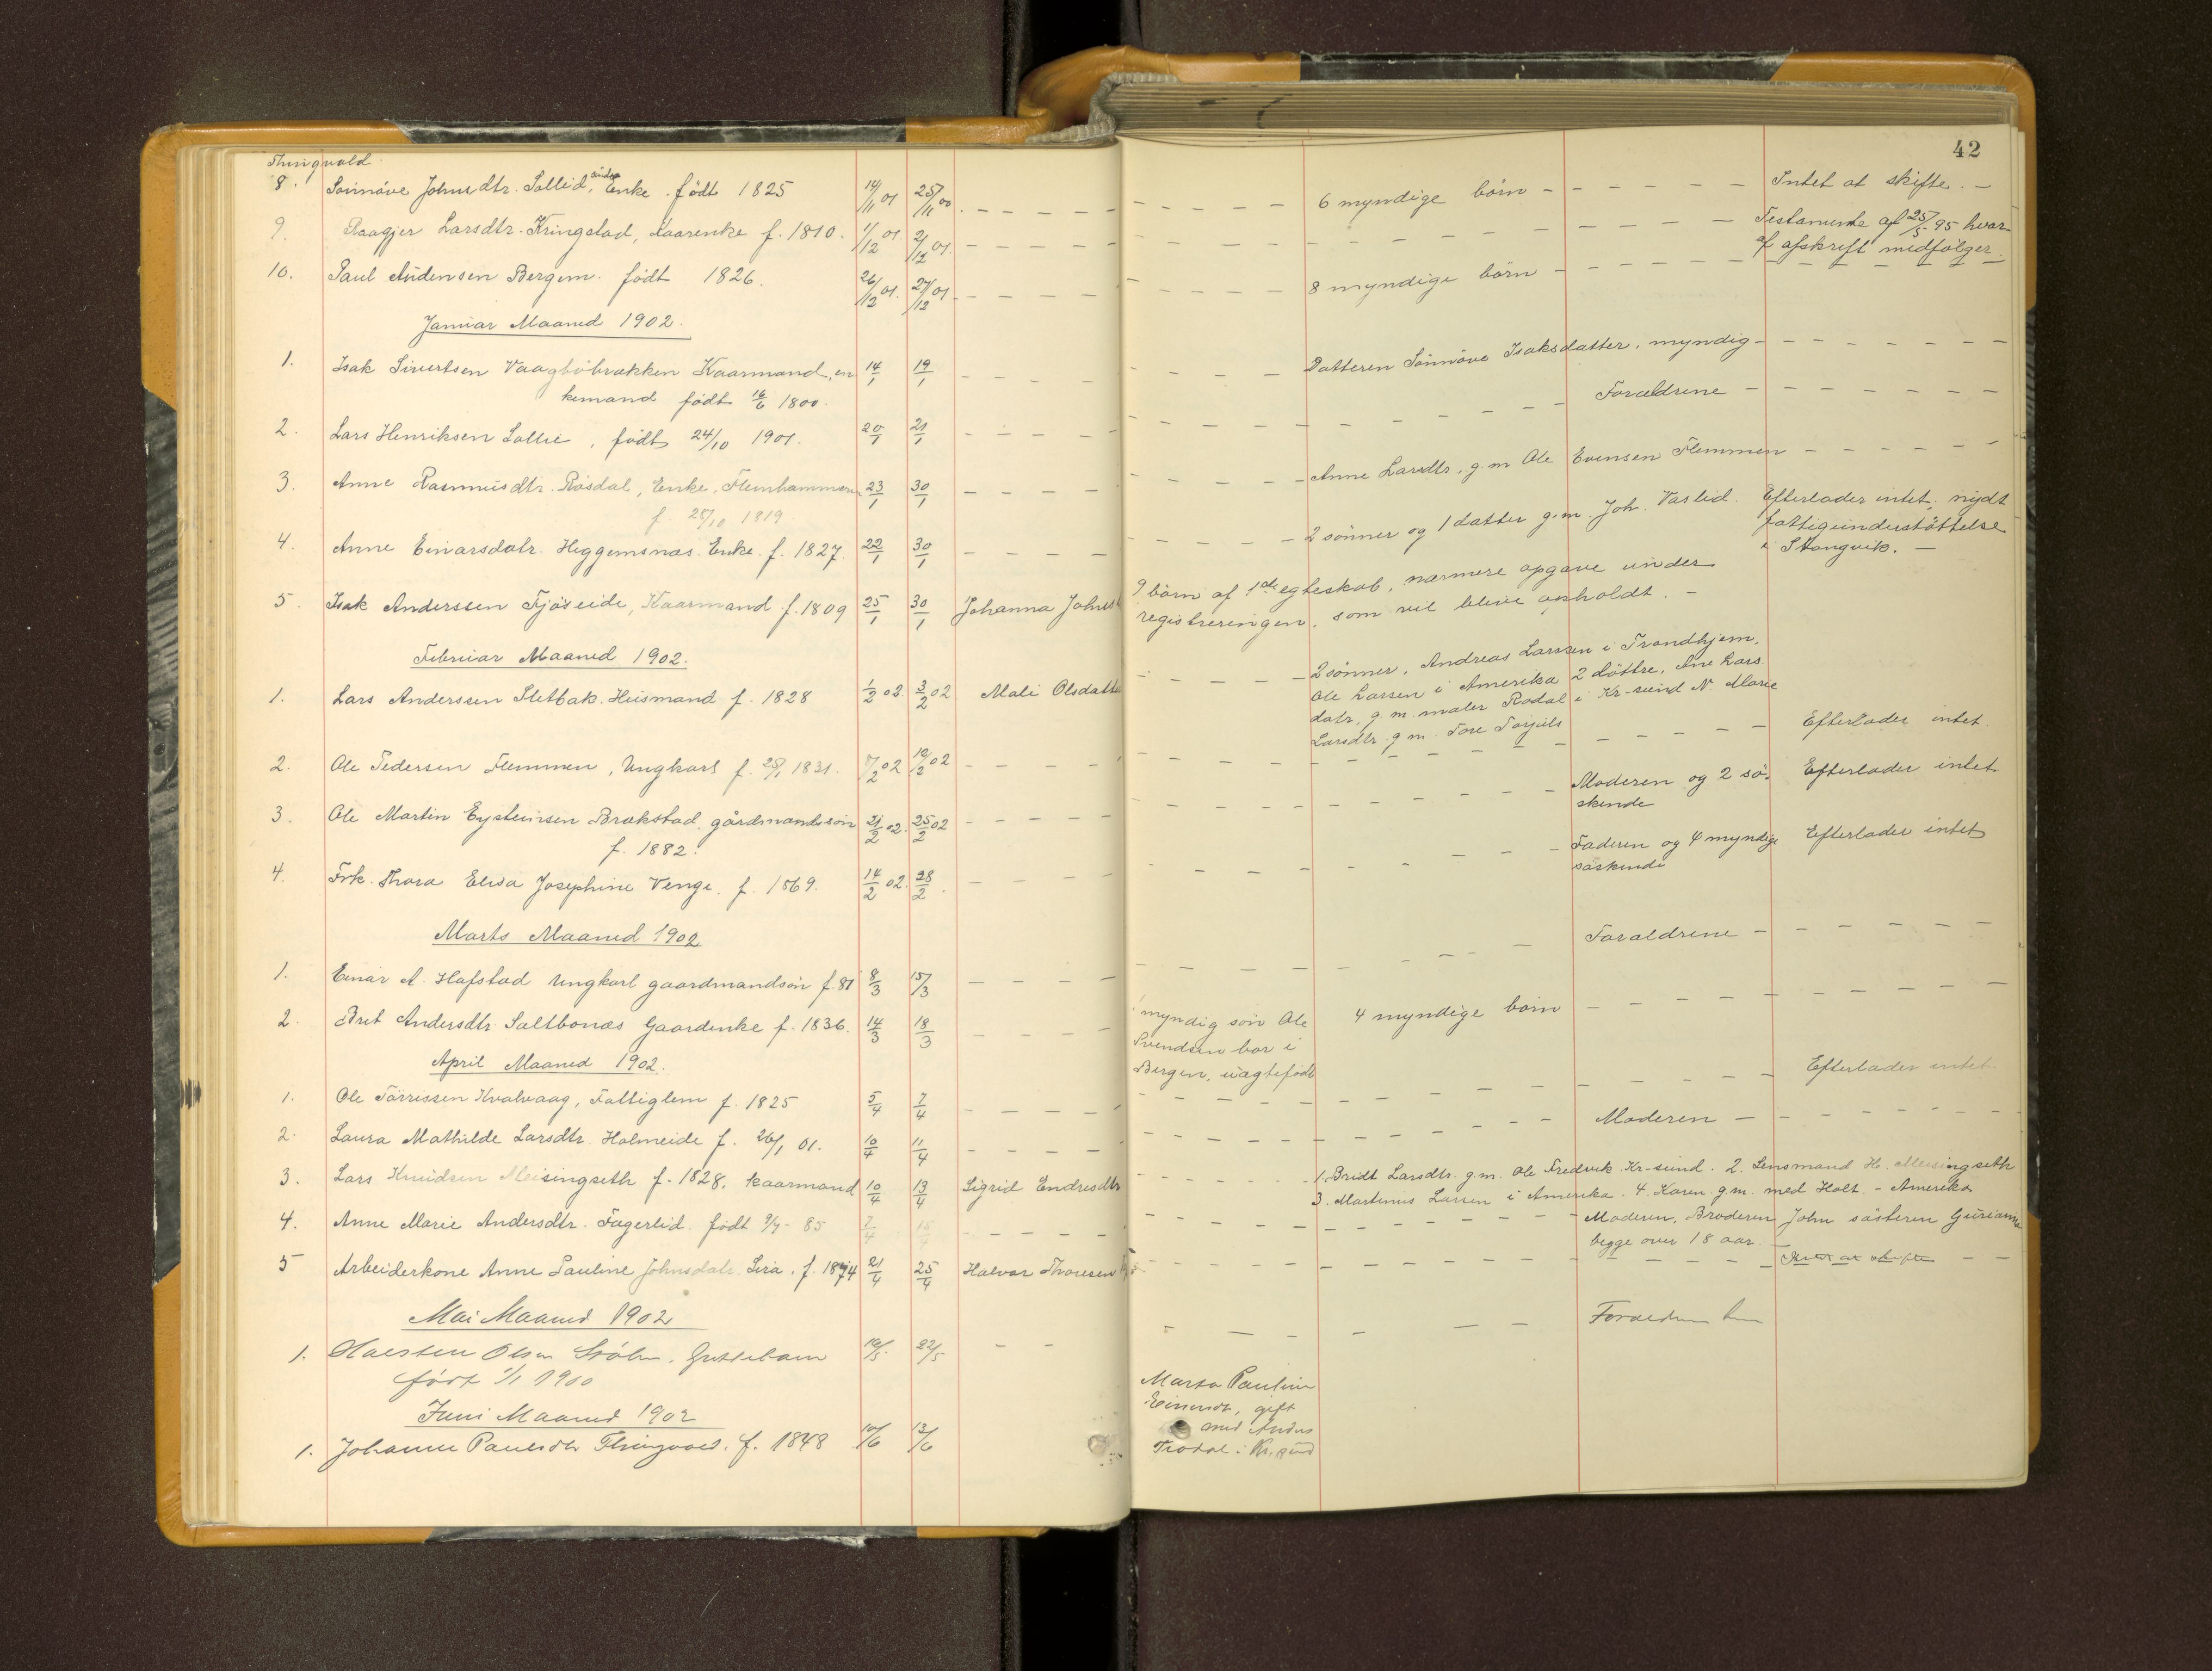 42
Thingvold.
8. Sønnøve Johnsdtr. Sollid, Enke. født 1825 14/11 01 25/11 00. 6 myndige børn Intet at skifte.
9. Larsdtr. Kringstad, Kaarenke f. 1810. 1/12 01. 2/12 01. Testamente af 25/5 95 hvor-
af afskrift medfølger.
10. Paul Andersen Bergem. født 1826. 26/12 01. 27/12 01. 8 myndige børn
Januar Maaned 1902.
1. Isak Sivertsen Vaagbøbrækken Kaarmand, en- 14/1 19/1 Datteren Sønnøve Isaksdatter, myndig
kemand født 16/6 1800.
2. Lars Henriksen Sollie, født 24/10 1901. 20/1 21/1 Forældrene
3. Anne Rasmusdtr. Røsdal, Enke, Flemhammeren 23/1 30/1 Anne Larsdtr. g. m. Ole Evensen Flemmen
f. 28/10 1819.
4. Anne Einarsdatr. Heggemsnæs Enke. f. 1827. 22/1 30/1 2 sønner og 1 datter g. m. Joh. Vaslid. Efterlader intet, nydt
fattigunderstøttelse
i Stangvik.
5. Isak Anderssen Fjøseide, Kaarmand. f. 1809 25/1 30/1 Johanna Johns 9 børn af 1ste egteskab, nærmere opgave under
registreringen, som vil blive afholdt.
Februar Maaned 1902.
1. Lars Anderssen Sletbak. Husmand f. 1828 1/2 02 3/2 02 Mali Olsdatter 2 sønner, Andreas Larssen i Trondhjem,
Ole Larsen i Amerika 2 døttre, Ane Lars-
datr. g. m. maler Rødal i Kr-sund N. Marie
Larsdtr. g. m. Tore Torjuls
2. Ole Pedersen Flemmen, Ungkarl f. 25/1 1831. 7/2 02 12/2 02 Efterlader intet
3. Ole Martin Eysteinsen Brækstad, gårdmandssøn 21/2 02. 25/2 02 Moderen og 2 sø- Efterlader intet
f. 1882. skende
4. Frk. Thora Elisa Josephine Venge. f. 1869. 14/2 02. 28/2. Faderen og 4 myndige Efterlader intet
søskende
Marts Maaned 1902
1. Einar A. Hafstad Ungkarl gaardmandsøn f. 81 8/3 15/3 Forældrene
2. Brit Andersdtr. Saltbønæs Gaardenke f. 1836. 14/3 18/3 1 myndig søn Ole 4 myndige børn
Svendsen bor i
Bergen, uægtefødt
April Maaned 1902.
1. Ole Tørrissen Kvalvaag, Fattiglem f. 1825 5/4 7/4 Efterlader intet.
2. Laura Mathilde Larsdtr. Holmeide f. 26/1 01. 10/4 11/4 Moderen
3. Lars Knudsen Meisingseth f. 1828, kaarmand 10/4 13/4 Sigrid Endresdtr 1. Bridt Larsdtr. g. m. Ole Fredvik Kr-sund. 2. Lensmand H. Meisingseth
3. Martinus Larsen i Amerika. 4. Karen g. m. med Holt. - Amerika
4. Anne Marie Andersdtr. Fagerlid født 9/4 - 85 Moderen, Broderen John søsteren Gurianne
begge over 18 aar.
5 Arbeiderkone Anne Pauline Johnsdatr. Lira. f. 1874 21/4 25/4 Halvor Thoresen Intet at skifte
Mai Maaned 1902
1. Olsen Guttebarn 22/5 Forældrene
født 1/1 1900
Juni Maaned 1902
1. Johanne Paulsdtr Thingvold. f. 1848 10/6 13/6 Marta Pauline
gift
med Anders
Trodal i Kr. sund